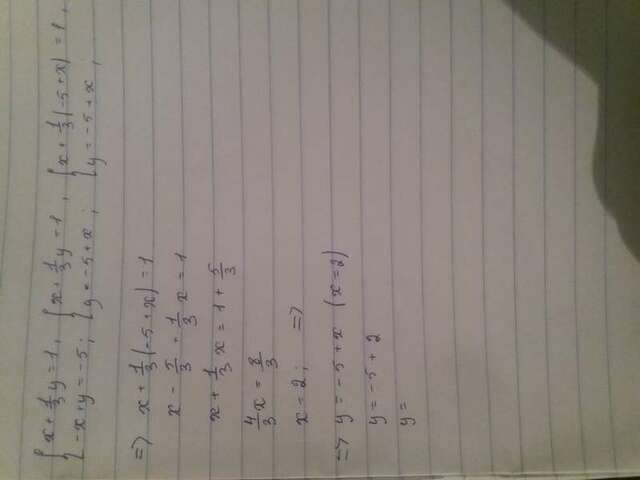 { x + 1/3 y = 1, { x + 1/3 y = 1, { x + 1/3 (-5 + x) = 1,
{ -x + y = -5; { y = -5 + x; { y = -5 + x;
=> x + 1/3 (-5 + x) = 1
x - 5/3 + 1/3 x = 1
x + 1/3 x = 1 + 5/3
4/3 x = 8/3
x = 2; =>
=> y = -5 + x (x = 2)
y = -5 + 2
y =